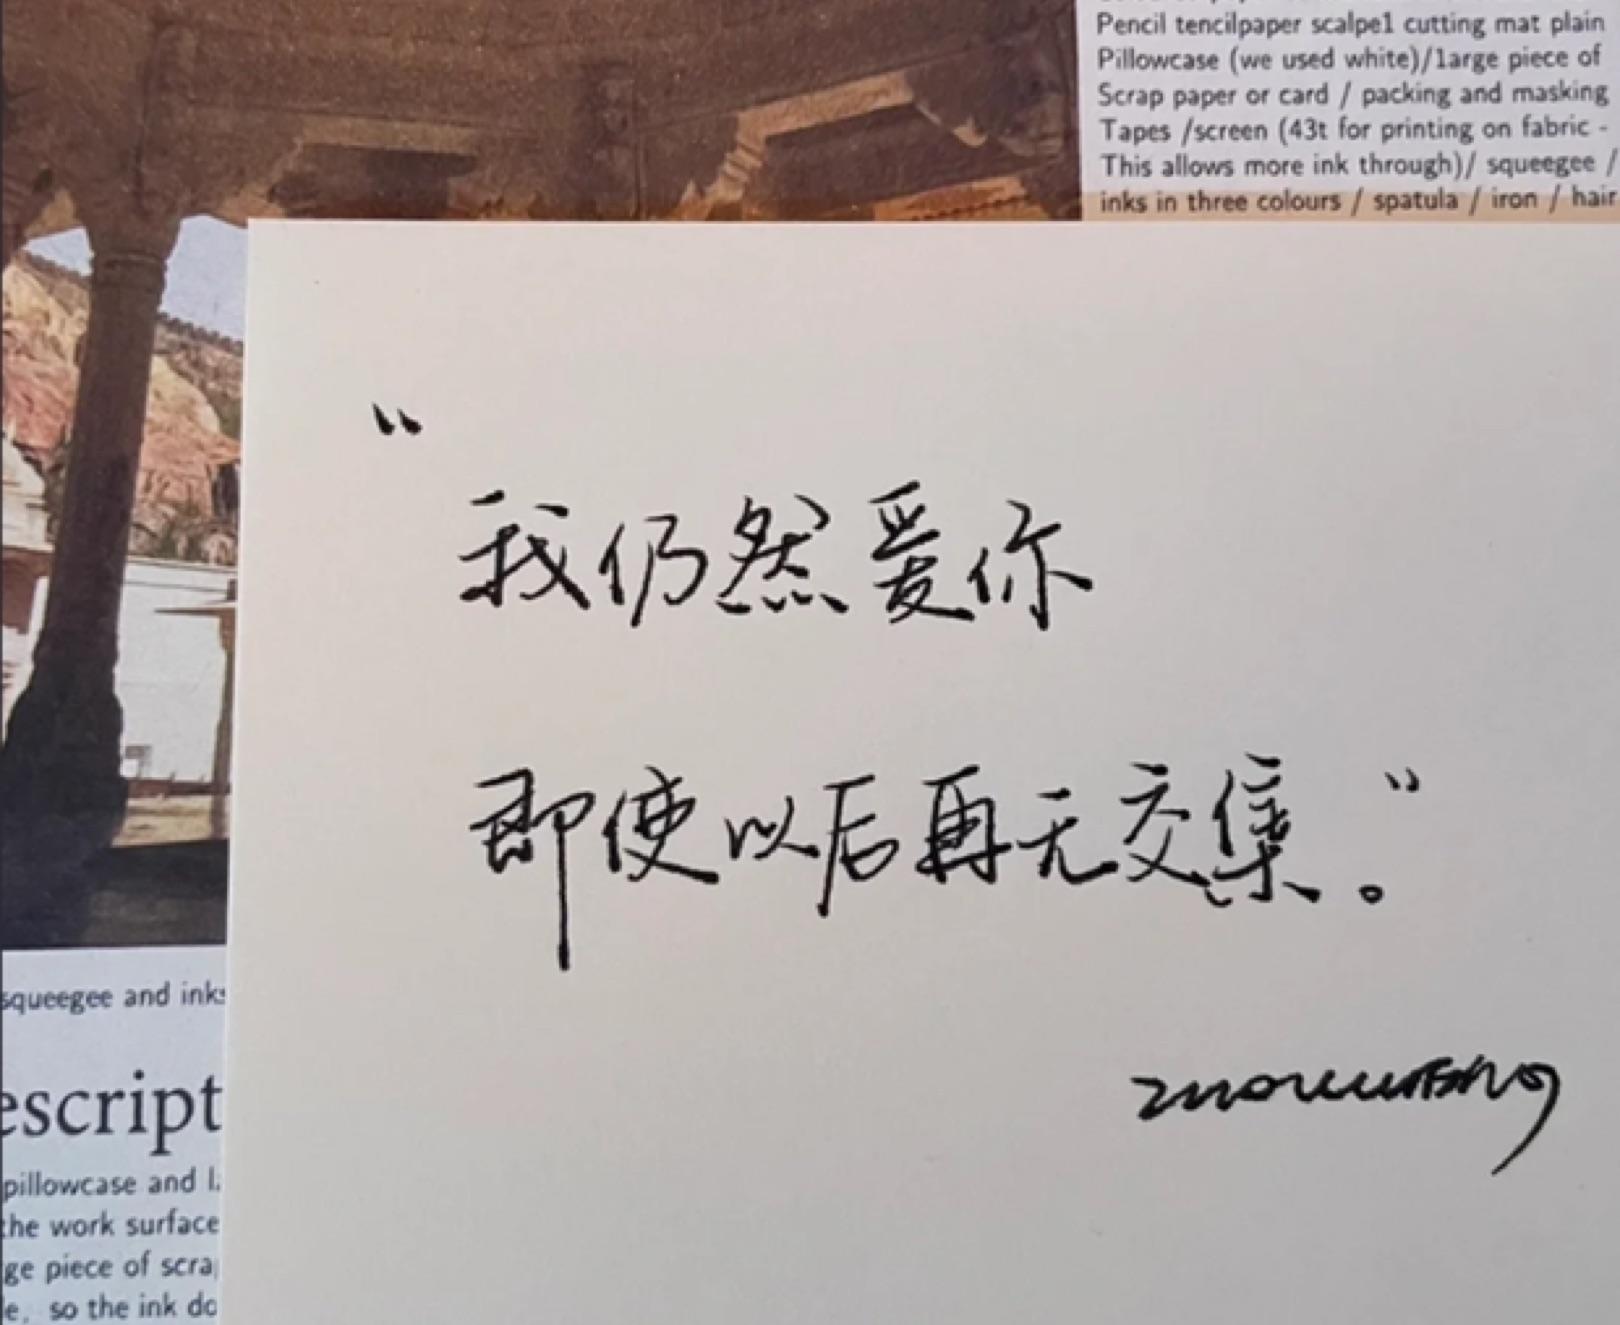 Pencil tencilpaper scalpel cutting mat plain
Pillowcase (we used white)/large piece of
Scrap paper or card / packing and masking
Tapes /screen (43t for printing on fabric -
This allows more ink through)/ squeegee /
inks in three colours / spatula / iron / hair
“
我仍然爱你
即使以后再无交集。”
squeegee and inks
escript
pillowcase and l
the work surface
ge piece of scra
e, so the ink do